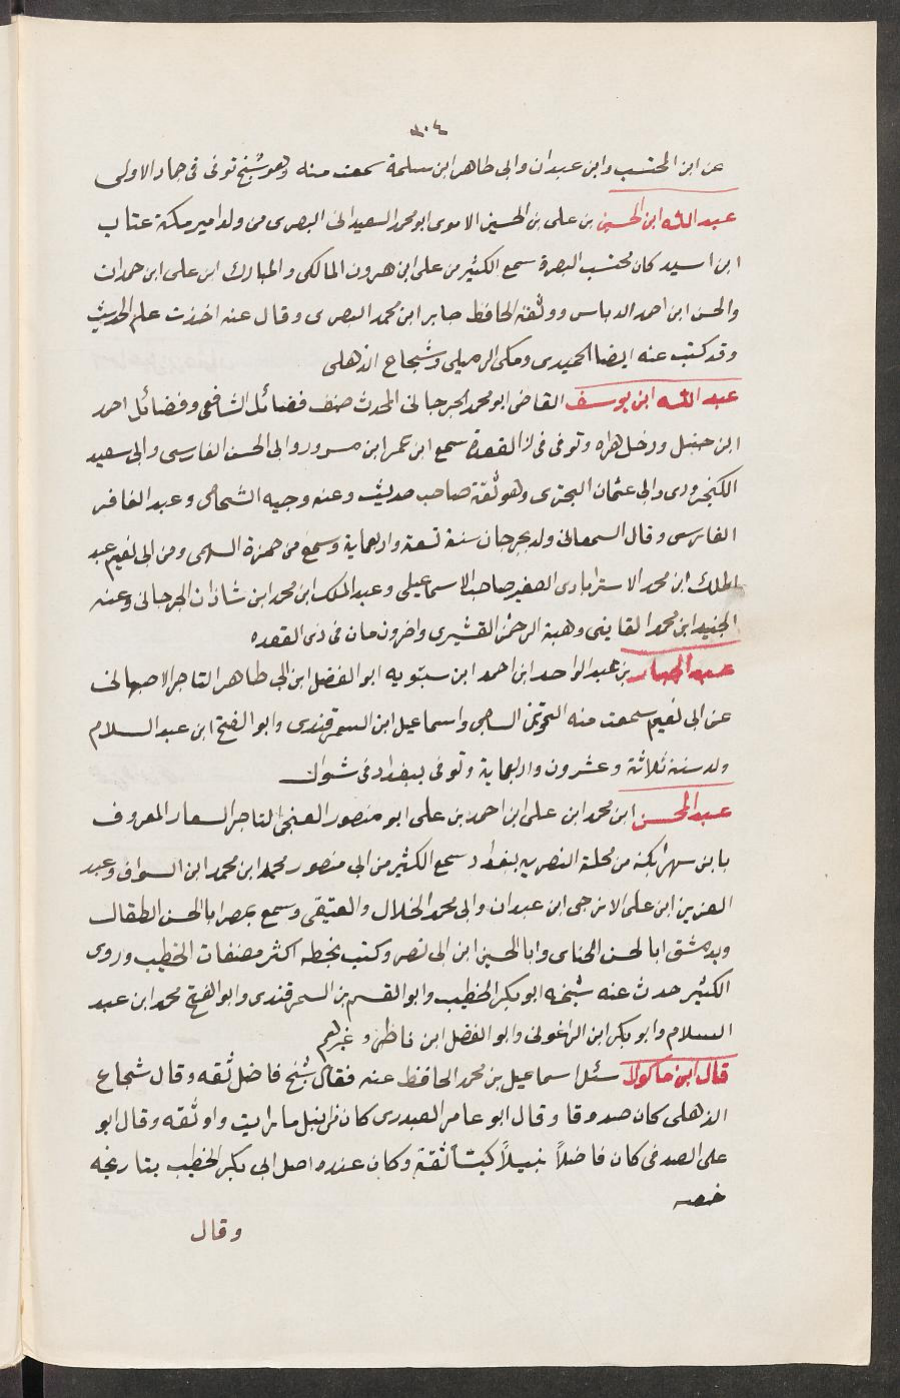 ٣٠٤
عن ابن المحتسب وابن عبدان وابى طاهر ابن سلمة سمعت منه وهو شيخ توفى فى جماد الاولى
عبد الله ابن الحسين بن على بن الحسين الاموى ابو محمد السعيدانى البصرى من ولد امير مكة عتاب
ابن اسيد كان محتسب البصرة سمع الكثير من على ابن هرون المالكى والمبارك ابن على ابن حمدان
والحسن ابن احمد الدباس ووثقه الحافظ جابر ابن محمد البصرى وقال عنه اخذت علم الحديث
وقد كتب عنه ايضا الحميدى ومكى الرميلى وشجاع الذهلى
عبد الله ابن يوسف القاضى ابو محمد الجرجانى المحدث صنف فضائل الشافعى وفضائل احمد
ابن حنبل ودخل هراه وتوفى فى ذا القعدة سمع ابن عمر ابن مسرور وابى الحسن الفارسى وابى سعيد
الكنجرودى وابى عثمان البحترى وهو ثقة صاحب حديث وعنه وجيه الشحامى وعبد الغافر
الفارسى وقال السمعانى ولد بجرجان سنة تسعة واربعماية وسمع من حمزة السهمى ومن ابى نعيم عبد
الملك ابن محمد الاستراباذى الصغير صاحب الاسماعيلى وعبد الملك ابن محمد ابن شاذان الجرجانى وعنه
الجنيد ابن محمد القاينى وهبة الرحمن القشيرى واخرون مات فى ذى القعده
عبد الجبار بن عبد الواحد ابن احمد ابن سبتويه ابو الفضل ابن ابى طاهر التاجر الاصبهانى
عن ابى نعيم سمعت منه المؤتمن الساجى واسماعيل ابن السمرقندى وابو الفتح ابن عبد السلام
ولد سنة ثلاثة وعشرون واربعماية وتوفى ببغداد فى شوال
عبد المحسن ابن محمد ابن على ابن احمد بن على ابو منصور الشيحى التاجر السفار المعروف
بابن سهرانكة من محلة النصريه ببغداد سمع الكثير من ابى منصور محمد ابن محمد ابن السواق وعبد
العزيز ابن على الازجى ابن عبدان وابى محمد الخلال والعتيقى وسمع بمصر ابا الحسن الطفال
وبدمشق ابا لحسن الحناى وابا الحسين ابن ابى نصر وكتب بخطه اكثر مصنفات الخطيب وروى
الكثير حدث عنه شيخه ابو بكر الخطيب وابو القسم بن السمرقندى وابو الفتح محمد ابن عبد
السلام وابو بكر ابن الزاغونى وابو الفضل ابن ناظر وغيرهم
قال ابن ماكولا سئل اسماعيل بن محمد الحافظ عنه فقال شيخ فاضل ثقه وقال شجاع
الذهلى كان صدوقا وقال ابو عامر العبدرى كان من انبل ما رايت واوثقه وقال ابو
على الصدفى كان فاضلاً نبيلاً كيسًا ثقة وكان عنده اصل ابى بكر الخطيب بتاريخه
خصه
وقال